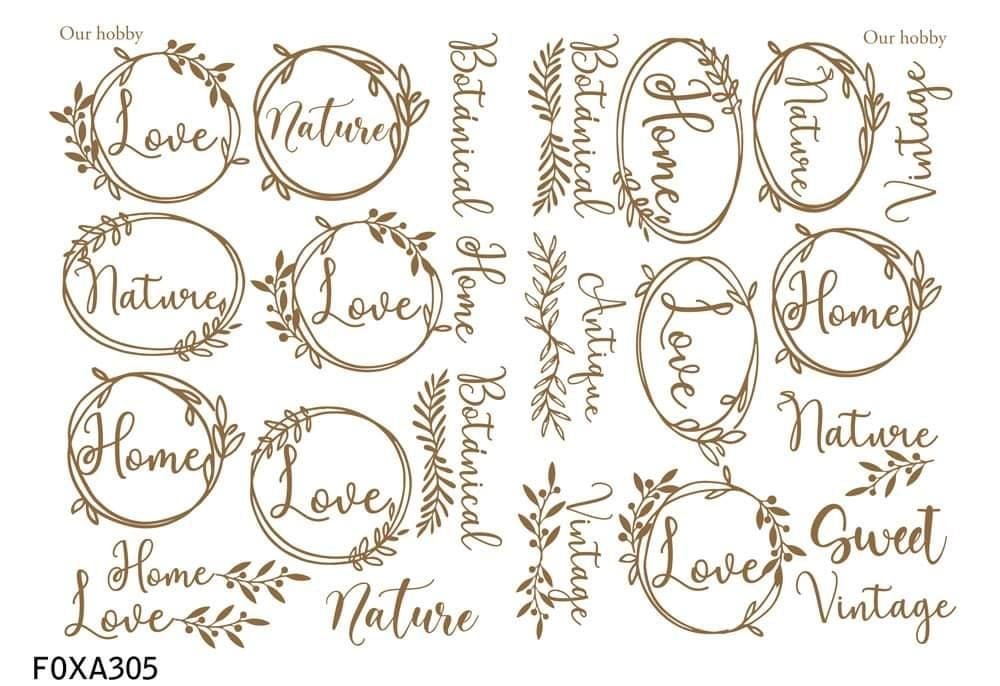 Our hobby
Our hobby
Love
Nature
Botanical
Botanical
Home
Nature
Vintage
Nature
Love
Home
Antique
Love
Home
Home
Love
Botanical
Nature
Vintage
Love
Sweet
Vintage
Home
Love
Nature
F0XA305